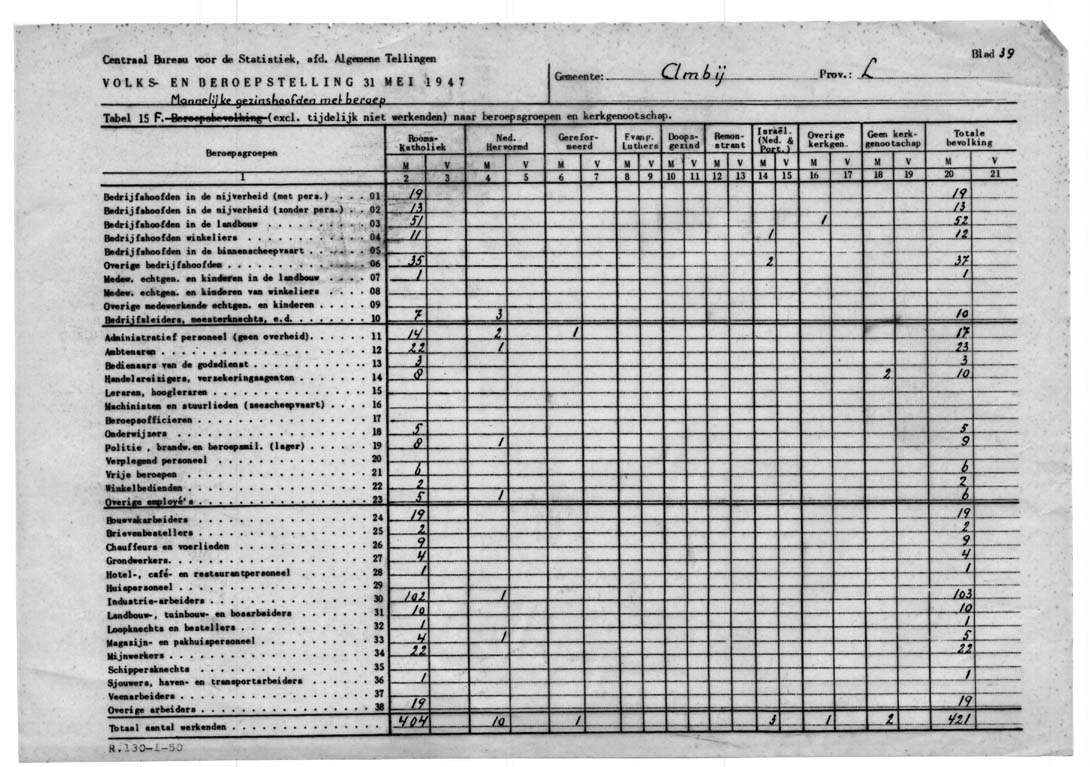 Centraal Bureau voor de Statistiek, afd. Algemene Tellingen
Blad 39
VOLKS- EN BEROEPSTELLING 31 MEI 1947
Gemeente: Ambij Prov.: L
Mannelijke gezinshoofden met beroep
Tabel 15 F. Beroepsbevolking (excl. tijdelijk niet werkenden) naar beroepsgroepen en kerkgenootschap.
Beroepsgroepen Rooms-Katholiek Ned. Hervormd Gereformeerd Evang. Luthers Doopsgezind Remonstrant Israël. (Ned. & Port.) Overige kerkgen. Geen kerkgenootschap Totale bevolking
M V M V M V M V M V M V M V M V M V M V
1 2 3 4 5 6 7 8 9 10 11 12 13 14 15 16 17 18 19 20 21
Bedrijfshoofden in de nijverheid (met pers.) 01 19 19
Bedrijfshoofden in de nijverheid (zonder pers.) 02 13 13
Bedrijfshoofden in de landbouw 03 51 1 52
Bedrijfshoofden winkeliers 04 11 1 12
Bedrijfshoofden in de binnenscheepvaart 05
Overige bedrijfshoofden 06 35 2 37
Medew. echtgen. en kinderen in de landbouw 07 1 1
Medew. echtgen. en kinderen van winkeliers 08
Overige medewerkende echtgen. en kinderen 09
Bedrijfsleiders, meesterknechts, e.d. 10 7 3 10
Administratief personeel (geen overheid) 11 14 2 1 17
Ambtenaren 12 22 1 23
Bedienaars van de godsdienst 13 3 3
Handelsreizigers, verzekeringsagenten 14 8 2 10
Leraren, hoogleraren 15
Machinisten en stuurlieden (zeescheepvaart) 16
Beroepsofficieren 17
Onderwijzers 18 5 5
Politie, brandw. en beroepsmil. (lager) 19 8 1 9
Verplegend personeel 20
Vrije beroepen 21 6 6
Winkelbedienden 22 2 2
Overige employé's 23 5 1 6
Bouwvakarbeiders 24 19 19
Brievenbestellers 25 2 2
Chauffeurs en voerlieden 26 9 9
Grondwerkers. 27 4 4
Hotel-, café- en restaurantpersoneel 28 1 1
Huispersoneel 29
Industrie-arbeiders 30 102 1 103
Landbouw-, tuinbouw- en bosarbeiders 31 10 10
Loopknechts en bestellers 32 1 1
Magazijn- en pakhuispersoneel 33 4 1 5
Mijnwerkers 34 22 22
Schippersknechts 35
Sjouwers, haven- en transportarbeiders 36 1 1
Veenarbeiders 37
Overige arbeiders 38 19 19
Totaal aantal werkenden 404 10 1 3 1 2 421
R.130-1-50